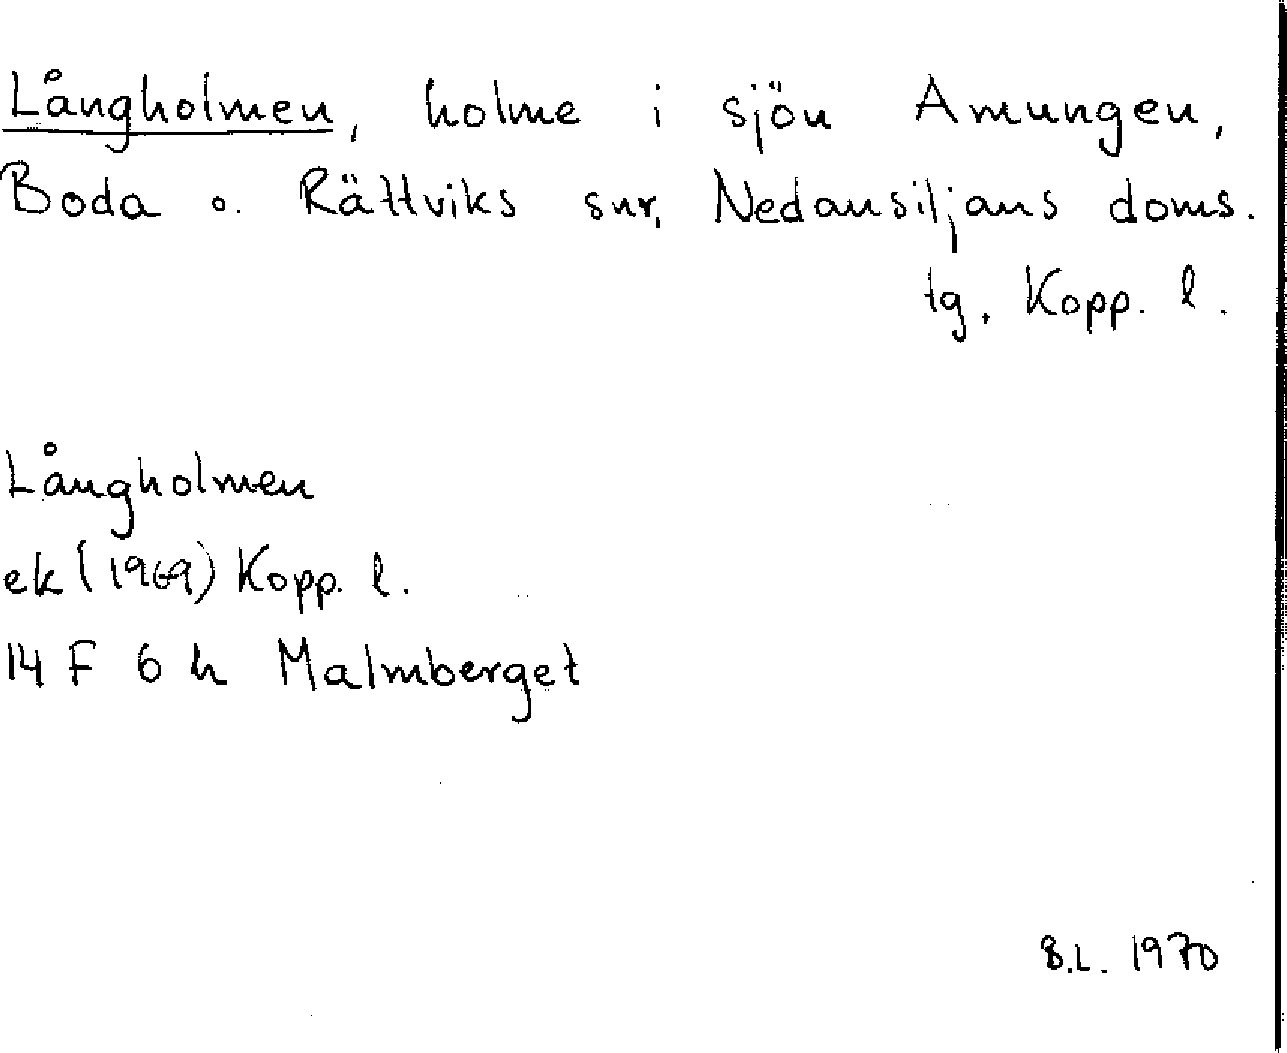 Långholmen, holme i sjön Amungen,
Boda o. Rättviks snr, Nedansiljans doms.
tg. Kopp. l.
Långholmen
ek (1969) Kopp. l.
14 F 6 h Malmberget
B.L. 1970